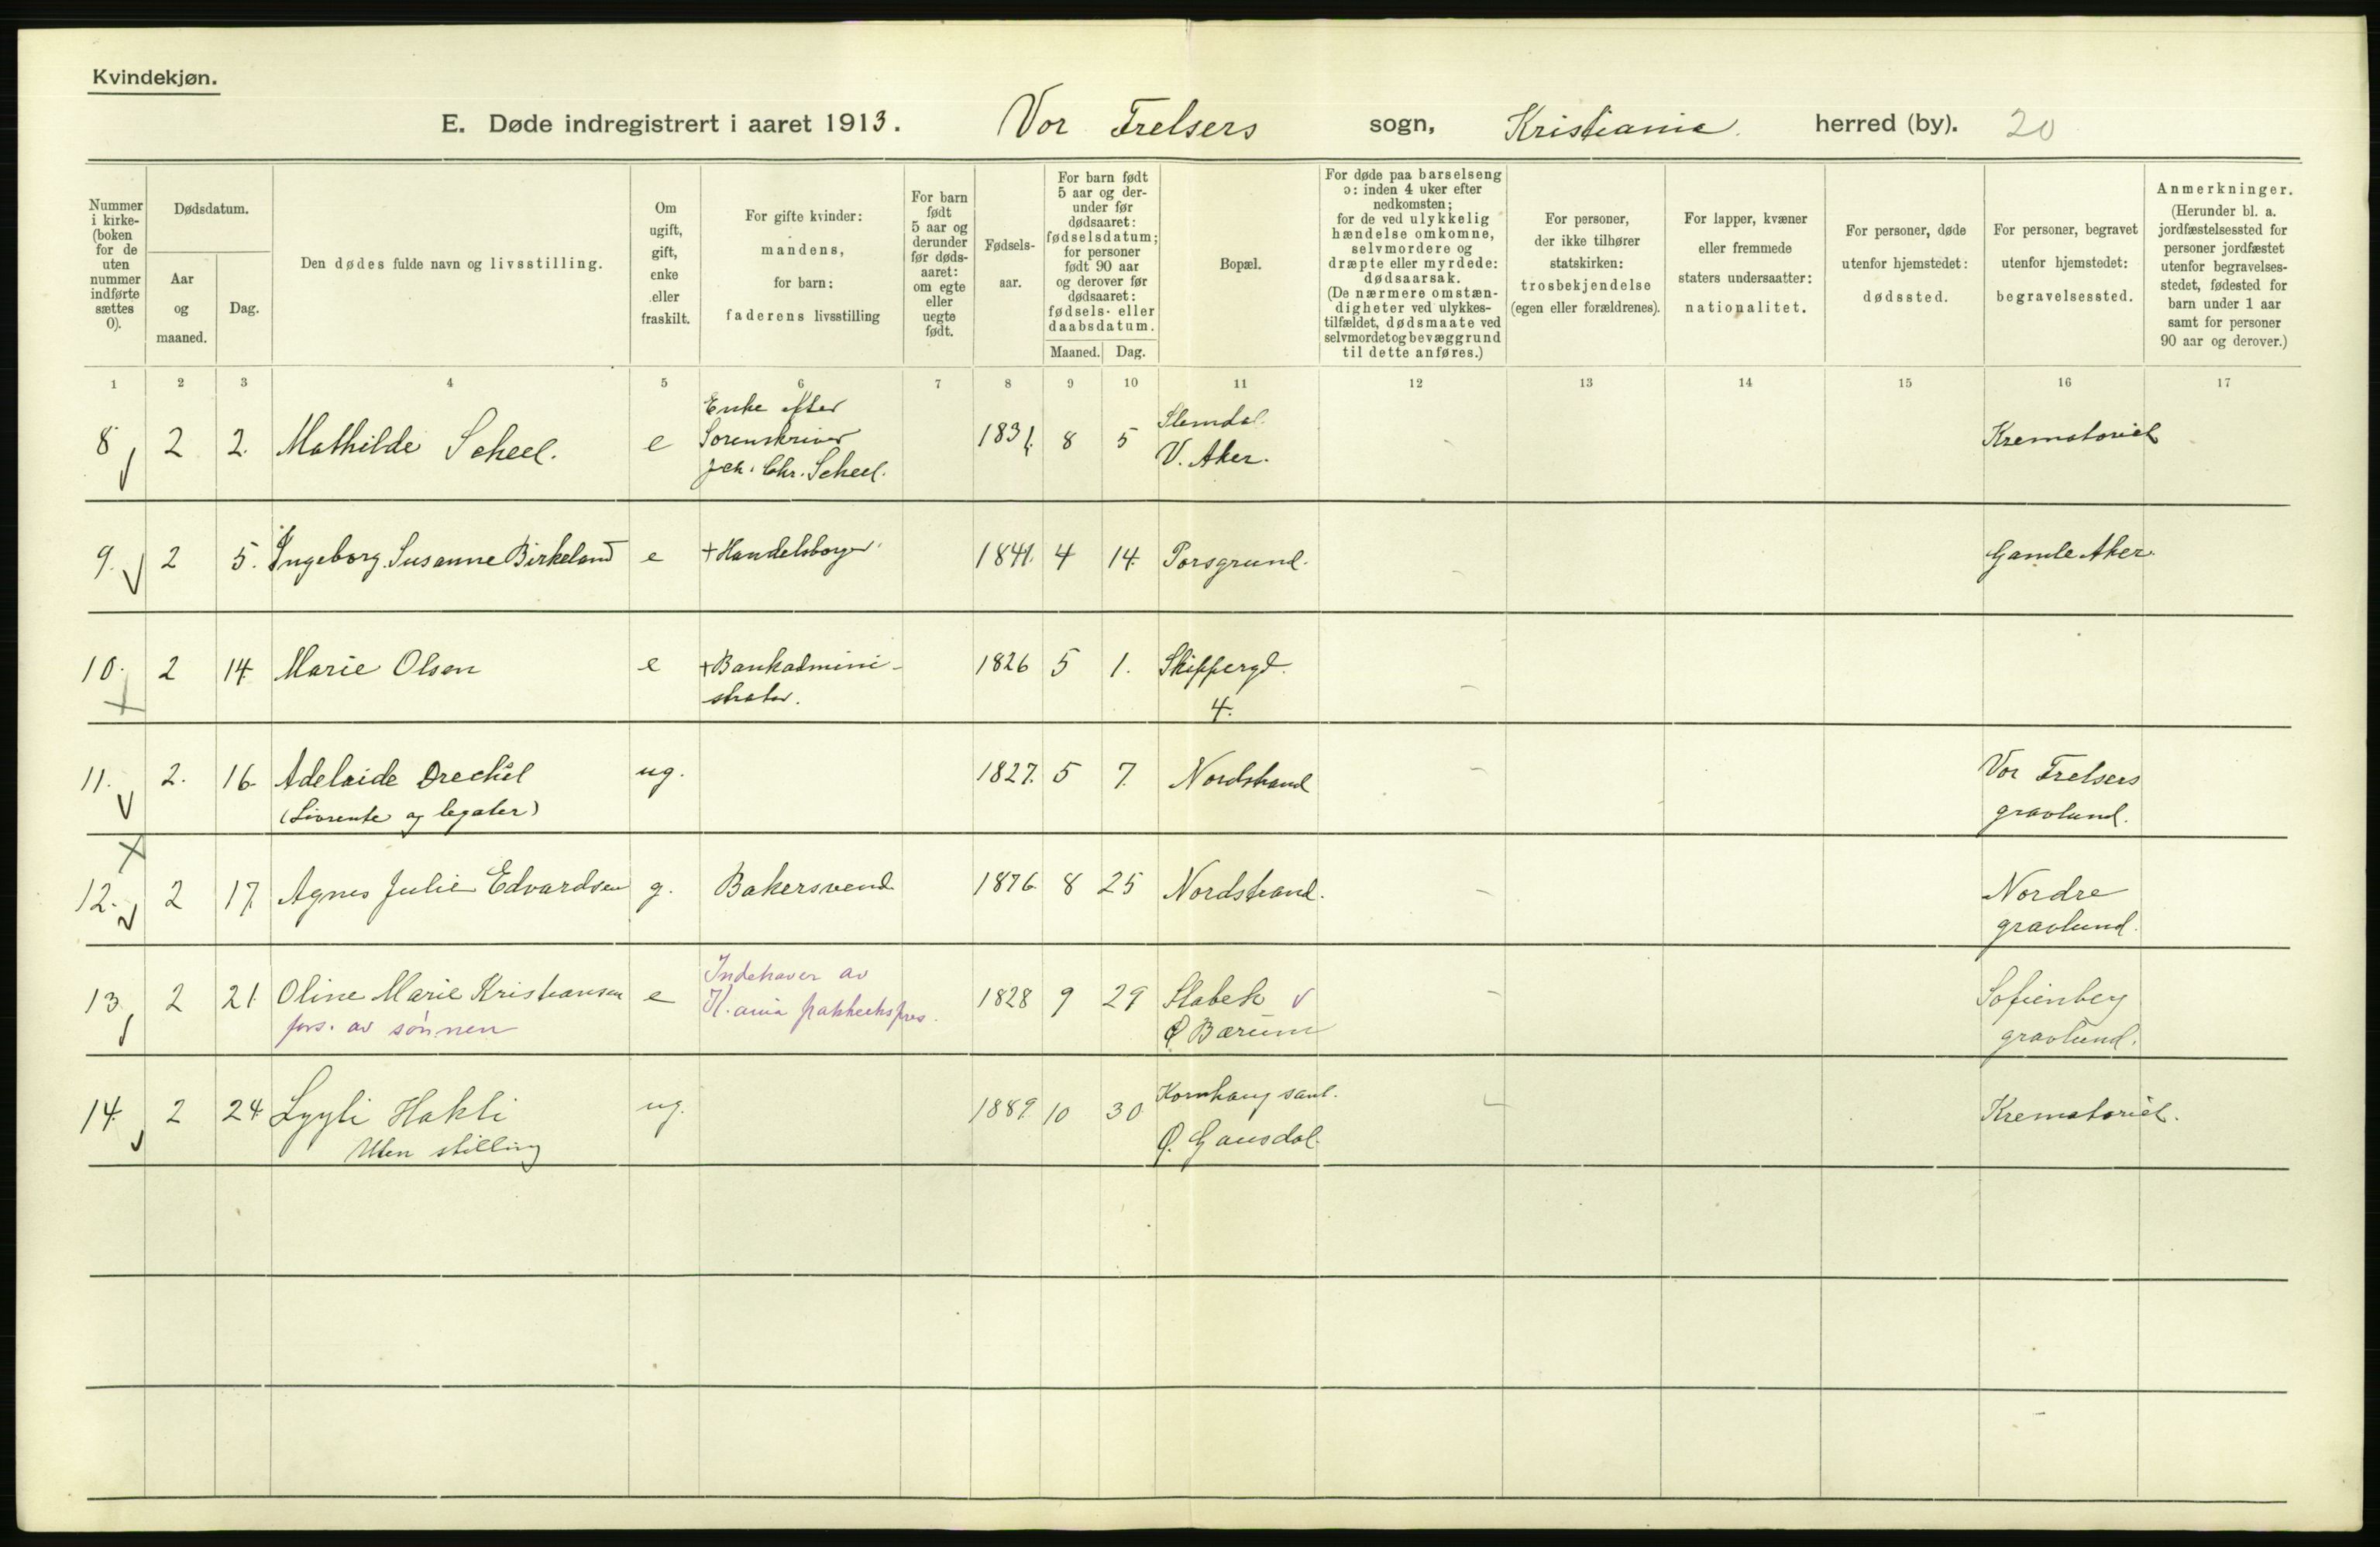 Kvindekjøn.
E. Døde indregistrert i aaret 1913. Vor Frelsers sogn, Kristiania. herred (by). 20
Nummer i kirkeboken for de uten nummer indførte sættes 0).
Dødsdatum.
Aar og maaned.
Dag.
Den dødes fulde navn og livsstilling.
Om ugift, gift, enke eller fraskilt.
For gifte kvinder: mandens, for barn: faderens livsstilling
For barn født 5 aar og derunder før dødsaaret: om egte eller uegte født.
Fødselsaar.
For barn født 5 aar og derunder før dødsaaret: fødselsdatum; for personer født 90 aar og derover før dødsaaret: fødsels- eller daabsdatum.
Maaned. Dag.
Bopæl.
For døde paa barselseng ɔ: inden 4 uker efter nedkomsten; for de ved ulykkelig hændelse omkomne, selvmordere og dræpte eller myrdede: dødsaarsak. (De nærmere omstændigheter ved ulykkestilfældet, dødsmaate ved selvmordet og bevæggrund til dette anføres.)
For personer, der ikke tilhører statskirken: trosbekjendelse (egen eller forældrenes).
For lapper, kvæner eller fremmede staters undersaatter: nationalitet.
For personer, døde utenfor hjemstedet: dødssted.
For personer, begravet utenfor hjemstedet: begravelsessted.
Anmerkninger. (Herunder bl. a. jordfæstelsessted for personer jordfæstet utenfor begravelsesstedet, fødested for barn under 1 aar samt for personer 90 aar og derover.)
1 2 3 4 5 6 7 8 9 10 11 12 13 14 15 16 17
8 2 2. Mathilde Scheel. e Enke efter Sorenskriver Joh. Chr. Scheel. 1831. 8 5 Slemdal. V. Aker. - Krematoriet
9. 2 5. Ingeborg Susanne Birkeland e +Handelsborger 1841. 4 14. Porsgrund. - Gamle Aker.
10. 2 14. Marie Olsen e +Bankadministrator. 1826 5 1. Skippergd. 4. -
11. 2. 16. Adelaide Drechsel ug. 1827. 5 7. Nordstrand - Vor Frelsers gravlund.
(Livrente og legater)
12. 2 17. Agnes Julie Edvardsen g. Bakersvend 1876. 8 25 Nordstrand. - Nordre gravlund.
13. 2 21. Oline Marie Kristiansen e Indehaver av K.ania pakkekspres. 1828 9 29 Stabek Ø Bærum - Sofienberg gravlund.
fors. av sønnen
14. 2 24. Lyyli Hakli ug. 1889. 10 30 Kornhaug san[]. Ø. Gausdal. - Krematoriet.
Uten stilling